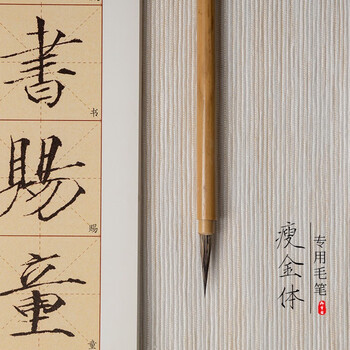 書
书
賜
赐
童
童
瘦金体
专用毛笔